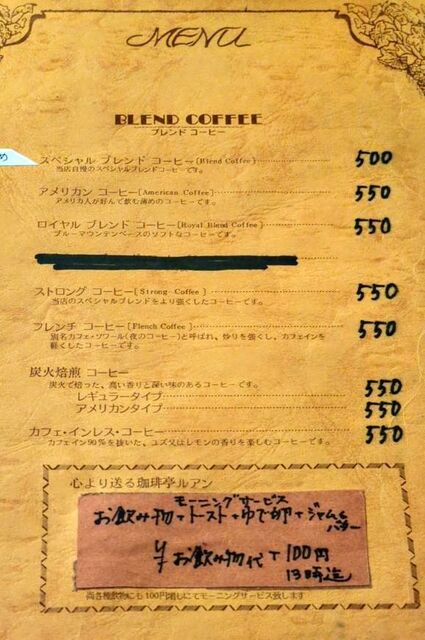 MENU
BLEND COFFEE
ブレンド コーヒー
め
スペシャル ブレンド コーヒー〔Blend Coffee〕 500
当店自慢のスペシャルブレンドコーヒーです。
アメリカン コーヒー〔American Coffee〕 550
アメリカ人が好んで飲む薄めのコーヒーです。
ロイヤル ブレンド コーヒー〔Royal Blend Coffee〕 550
ブルーマウンテンベースのソフトなコーヒーです。
ストロング コーヒー〔Strong Coffee〕 550
当店のスペシャルブレンドをより強くしたコーヒーです。
フレンチ コーヒー〔Flench Coffee〕 550
別名カフェ・ソワール(夜のコーヒー)と呼ばれ、炒りを強くし、カフェインを
軽くしたコーヒーです。
炭火焙煎 コーヒー
炭火で焙った、高い香りと深い味のあるコーヒーです。
レギュラータイプ 550
アメリカンタイプ 550
カフェ・インレス・コーヒー 550
カフェイン90%を抜いた、ユズ又はレモンの香りを楽しむコーヒーです。
心より送る珈琲亭ルアン
モーニングサービス
お飲み物+トースト+ゆで卵+ジャム&
バター
¥ お飲み物代+100円
13時迄
尚各種飲物にも100円増しにてモーニングサービス致します